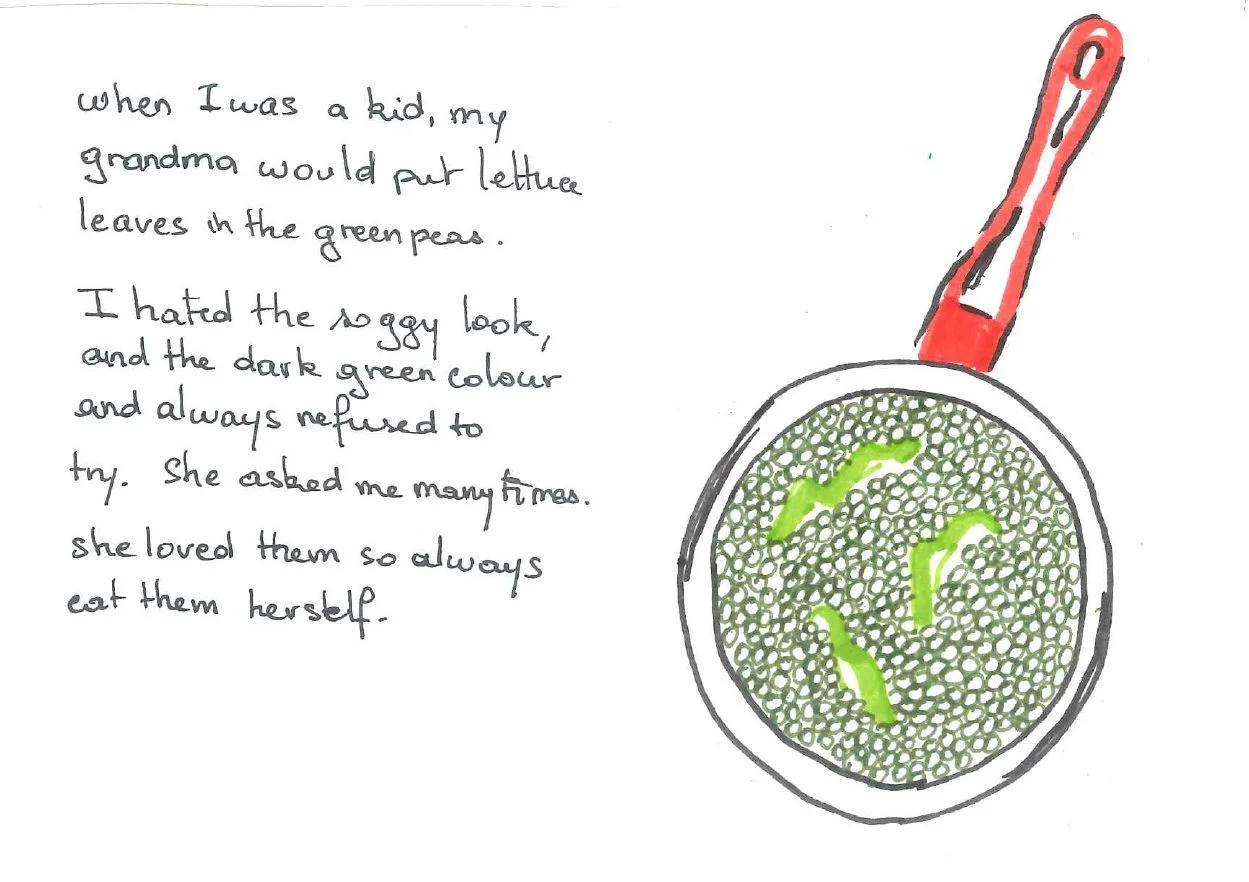 when I was a kid, my
grandma would put lettuce
leaves in the green peas.
I hated the soggy look,
and the dark green colour
and always refused to
try. She asked me many times.
she loved them so always
eat them herself.